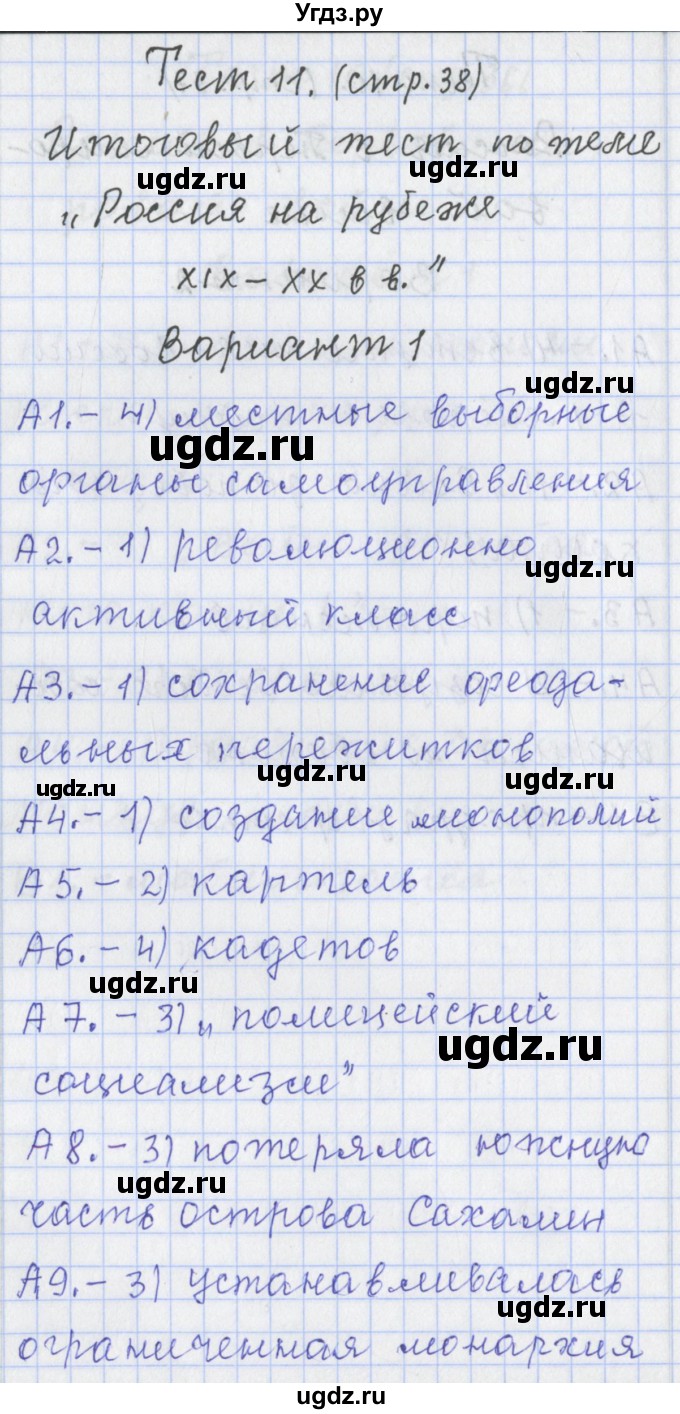 Угдз.ру
Тест 11. (стр. 38)
Итоговый тест по теме
ugdz.ru ugdz.ru
„Россия на рубеже
XIX – XX в в.”
Вариант 1
ugdz.ru
А1. – 4) местные выборные
ugdz.ru
органы самоуправления
А2. – 1) революционно
ugdz.ru
активный класс
А3. – 1) сохранение феода-
льных пережитков
ugdz.ru ugdz.ru
А4. – 1) создание монополий
А5. – 2) картель
А6. – 4) кадетов
ugdz.ru
А7. – 3) „полицейский
ugdz.ru
социализм”
А8. – 3) потеряла южную
ugdz.ru
часть острова Сахалин
А9. – 3) устанавливалась
ugdz.ru
ограниченная монархия
ugdz.ru